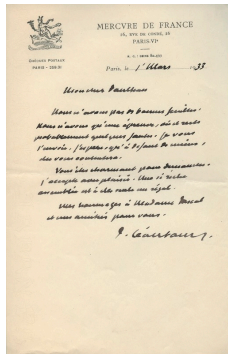 MERCVRE DE FRANCE
26, RVE DE CONDÉ, 26
PARIS-VIe
R. C. : SEINE 80.493
CHÈQUES POSTAUX
PARIS - 259-31
Paris, le 1er Mars 1933
Monsieur Paulhan
Nous n'avons pas de bonnes feuilles.
Nous n'avons qu'une épreuve, où il reste
probablement quelques fautes. Je vous
l'envoie. J'espère qu'à défaut de mieux,
elle vous contentera.
Vous êtes charmant pour dimanche.
J'accepte avec plaisir. Une si belle
assemblée est à elle seule un régal.
Mes hommages à Madame Pascal
et mes amitiés pour vous.
P. Léautaud